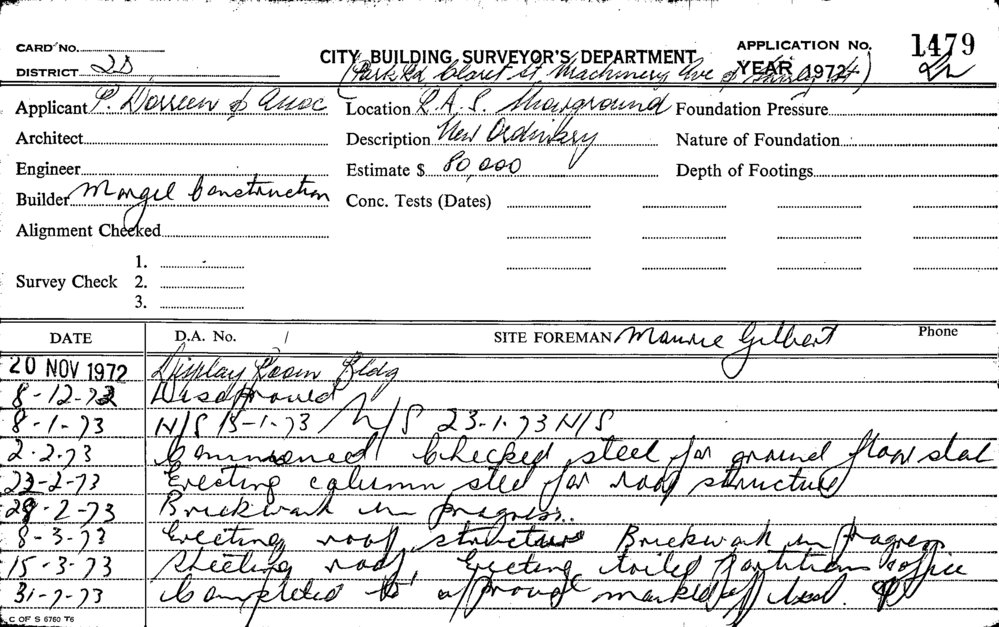 CARD No.
CITY BUILDING SURVEYOR'S DEPARTMENT
APPLICATION No. 1479
DISTRICT 2D
(Park Rd Claret St Machinery Ave
YEAR 1972
Applicant P. Dorreen & Assoc
Location R.A.S. Showground
Foundation Pressure
Architect
Description New Ordinary
Nature of Foundation
Engineer
Estimate $ 80,000
Depth of Footings
Builder Morgel Construction
Conc. Tests (Dates)
Alignment Checked
Survey Check
1.
2.
3.
DATE D.A. No. / SITE FOREMAN Maurie Gilbert Phone
20 NOV 1972 Display Room Bldg
8-12-72 Disapproved
8-1-73 N/S 15-1-73 N/S 23-1-73 N/S
2-2-73 Commenced Checked steel for ground floor slab
22-2-73 Erecting column steel for roof structure
28-2-73 Brickwork in progress.
8-3-73 Erecting roof structure Brickwork in progress
15-3-73 Sheeting roof, Erecting toilet partitions office
31-7-73 Completed to approval marked off
C OF S 6760 T6